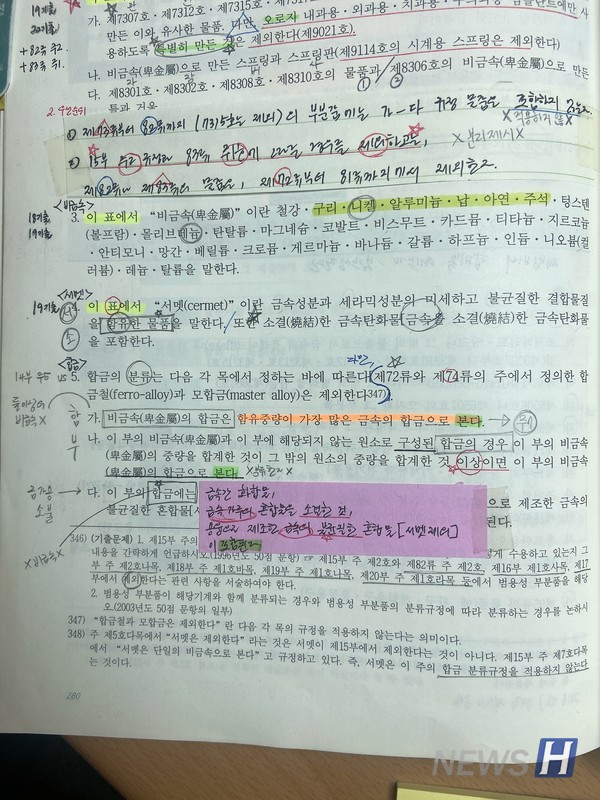 19기출
20기출
가. 제7307호·제7312호·제7315호·제7317호
만든 이와 유사한 물품. 다만 오로지 내과용·외과용·치과용·수의과용 임플란트에만 사
용하도록 특별히 만든 것은 제외한다(제9021호).
+82류 주2.
+83류 주1.
나. 비금속(卑金屬)으로 만든 스프링과 스프링판(제9114호의 시계용 스프링은 제외한다)
다. 제8301호·제8302호·제8308호·제8310호의 물품과 제8306호의 비금속(卑金屬)으로 만든
틀과 거울
2. 우선순위
① 제73류부터 82류까지 (7315호는 제외)의 부분품에는 가~다 규정 물품을 포함하지 않는다
X 적용하지 않음 X
제외하고,
X 분리제시 X
제82류나 제83류의 물품은, 제72류부터 81류까지에서 제외한다.
<비금속>
18기출
19기출
3. 이 표에서 “비금속(卑金屬)”이란 철강·구리·니켈·알루미늄·납·아연·주석·텅스텐
(볼프람)·몰리브데늄·탄탈륨·마그네슘·코발트·비스무트·카드뮴·티타늄·지르코늄
·안티모니·망간·베릴륨·크로뮴·게르마늄·바나듐·갈륨·하프늄·인듐·니오븀(컬
러븀)·레늄·탈륨을 말한다.
<서멧>
19기출
4. 이 표에서 “서멧(cermet)”이란 금속성분과 세라믹성분의 미세하고 불균질한 결합물질
을 함유한 물품을 말한다. 또한 소결(燒結)한 금속탄화물(금속을 소결(燒結)한 금속탄화물
을 포함한다.
<합금>
다만,
14부 주5 vs
5. 합금의 분류는 다음 각 목에서 정하는 바에 따른다(제72류와 제74류의 주에서 정의한 합
금철(ferro-alloy)과 모합금(master alloy)은 제외한다347)).
비금속 X
합
가. 비금속(卑金屬)의 합금은 함유중량이 가장 많은 금속의 합금으로 본다.
부
나. 이 부의 비금속(卑金屬)과 이 부에 해당되지 않는 원소로 구성된 합금의 경우 이 부의 비금속
(卑金屬)의 중량을 합계한 것이 그 밖의 원소의 중량을 합계한 것 이상이면 이 부의 비금속
(卑金屬)의 합금으로 본다.
소불
다. 이 부의 합금에는
으로 제조한 금속의
불균질한 혼합물(서
된다.
금속간 화합물,
금속가루의 혼합물을 소결한 것,
용융으로 제조한 금속의 불균질한 혼합물 [서멧제외]
이 포함된다
X 비금속 X
346) (기출문제) 1. 제15부 주 제2호
게 수용하고 있는지 그
내용을 간략하게 언급하시오(1996년도 50점 문항) ☞ 제15부 주 제2호와 제82류 주 제2호, 제16부 주 제1호사목, 제17
부 주 제2호나목, 제18부 주 제1호바목, 제19부 주 제1호나목, 제20부 주 제1호라목 등에서 범용성 부분품을 해당
부에서 제외한다는 관련 사항을 서술하여야 한다.
2. 범용성 부분품이 해당기계와 함께 분류되는 경우와 범용성 부분품의 분류규정에 따라 분류하는 경우를 논하시
오.(2003년도 50점 문항의 일부)
347) “합금철과 모합금은 제외한다” 란 다음 각 목의 규정을 적용하지 않는다는 의미이다.
348) 주 제5호다목에서 “서멧은 제외한다” 라는 것은 서멧이 제15부에서 제외한다는 것이 아니다. 제15부 주 제7호다목
에서 “서멧은 단일의 비금속으로 본다” 고 규정하고 있다. 즉, 서멧은 이 주의 합금 분류규정을 적용하지 않는다
는 것이다.
280
NEWS H